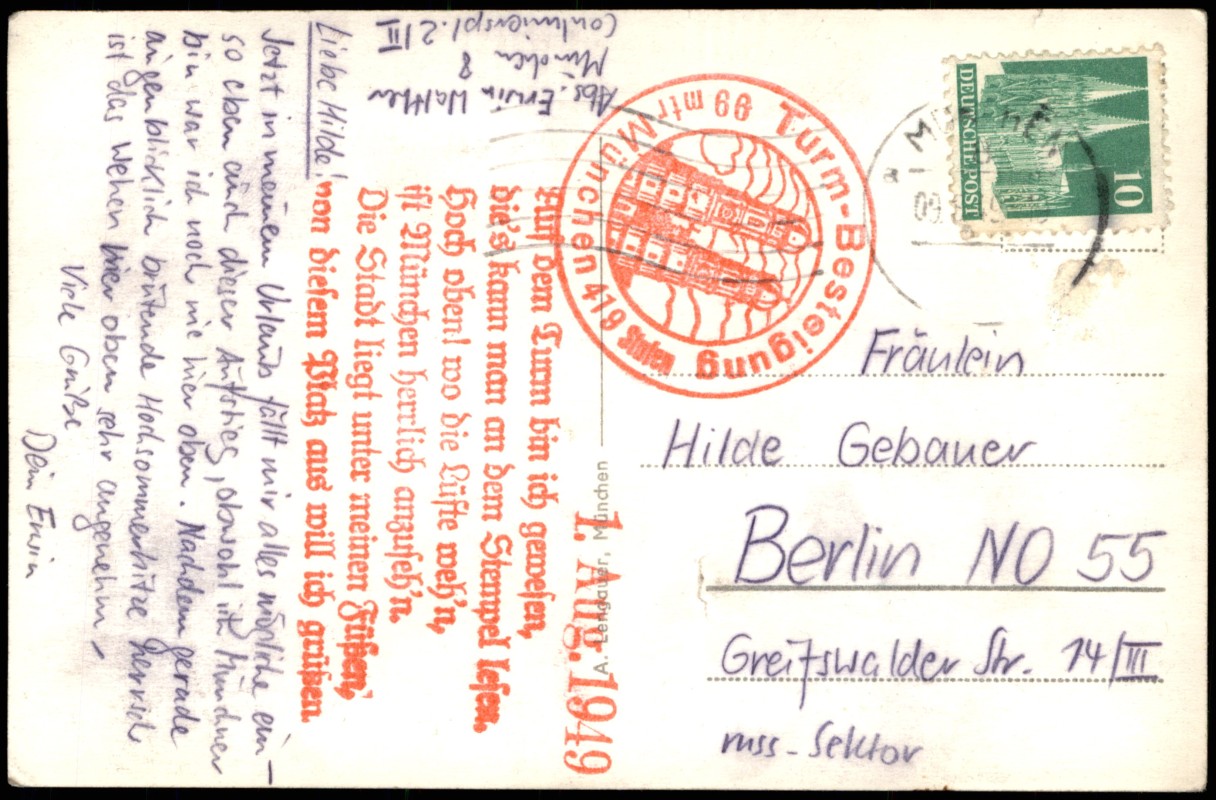 Abs. Erwin Walther
München
8
pl. 2/III
Liebe Hilde!
Jetzt in meinem Urlaub fällt mir alles mögliche ein –
so eben auch dieser Aufstieg, obwohl ich Münchner
bin war ich noch nie hier oben. Nachdem gerade
augenblicklich brütende Hochsommerhitze herrscht
ist das Wehen hier oben sehr angenehm, –
Viele Grüße
Dein Erwin
Auf dem Turm bin ich gewesen,
die's kann man an dem Stempel lesen.
Hoch oben! wo die Lüfte weh'n,
ist München herrlich anzuseh'n.
Die Stadt liegt unter meinen Füßen,
von diesem Platz aus will ich grüßen
1. Aug. 1949
Turm-Besteigung
München 419
99 mtr
A. Lengauer, München
MÜNCHEN
DEUTSCHE POST
10
Fräulein
Hilde Gebauer
Berlin NO 55
Greifswalder Str. 14/III
russ-Sektor